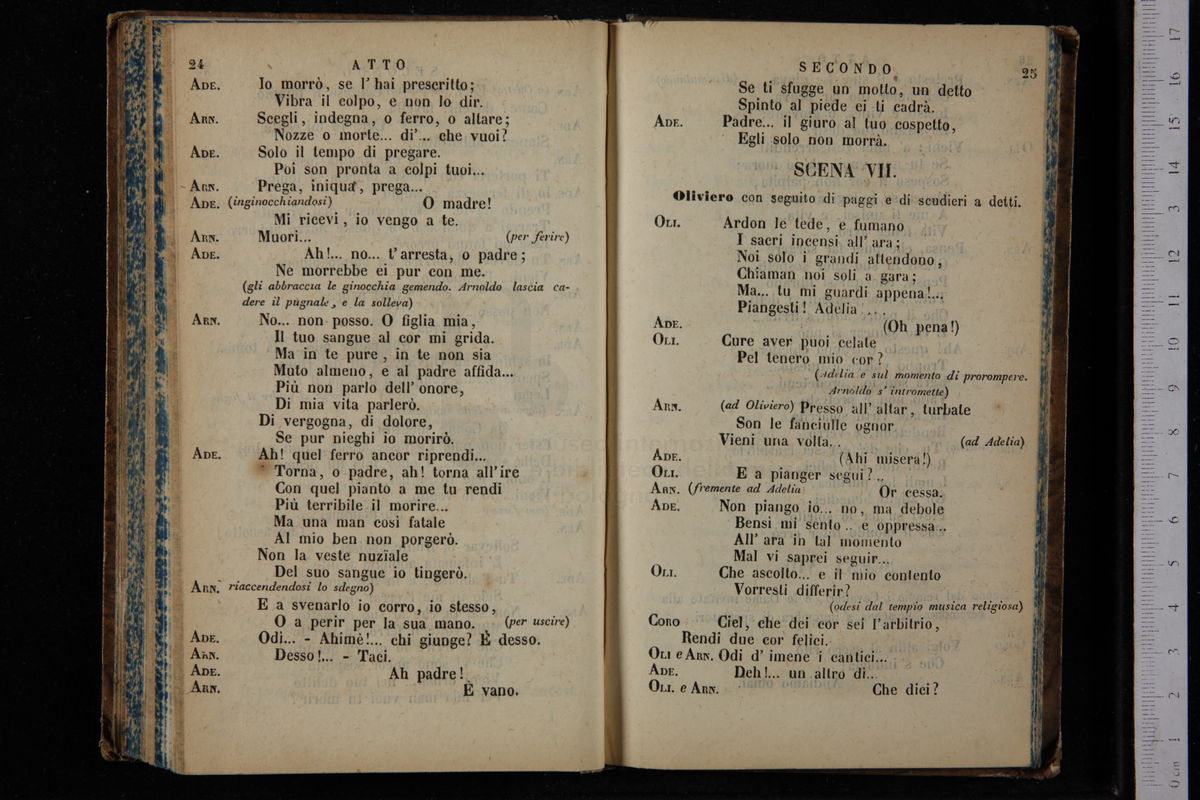 24 ATTO
ADE. Io morrò, se l' hai prescritto;
Vibra il colpo, e non lo dir.
ARN. Scegli, indegna, o ferro, o altare;
Nozze o morte... di'... che vuoi?
ADE. Solo il tempo di pregare.
Poi son pronta a colpi tuoi...
ARN. Prega, iniqua, prega...
ADE. (inginocchiandosi) O madre!
Mi ricevi, io vengo a te.
ARN. Muori... (per ferire)
ADE. Ah!... no... t'arresta, o padre;
Ne morrebbe ei pur con me.
(gli abbraccia le ginocchia gemendo. Arnoldo lascia ca-
dere il pugnale, e la solleva)
ARN. No... non posso. O figlia mia,
Il tuo sangue al cor mi grida.
Ma in te pure, in te non sia
Muto almeno, e al padre affida...
Più non parlo dell' onore,
Di mia vita parlerò.
Di vergogna, di dolore,
Se pur nieghi io morirò.
ADE. Ah! quel ferro ancor riprendi...
Torna, o padre, ah! torna all'ire
Con quel pianto a me tu rendi
Più terribile il morire...
Ma una man così fatale
Al mio ben non porgerò.
Non la veste nuzïale
Del suo sangue io tingerò.
ARN. riaccendendosi lo sdegno)
E a svenarlo io corro, io stesso,
O a perir per la sua mano. (per uscire)
ADE. Odi... - Ahimè!... chi giunge? È desso.
ARN. Desso!... - Taci.
ADE. Ah padre!
ARN. È vano.
SECONDO 25
Se ti sfugge un motto, un detto
Spinto al piede ei ti cadrà.
ADE. Padre... il giuro al tuo cospetto,
Egli solo non morrà.
SCENA VII.
Oliviero con seguito di paggi e di scudieri a detti.
OLI. Ardon le tede, e fumano
I sacri incensi all' ara;
Noi solo i grandi attendono,
Chiaman noi soli a gara;
Ma... tu mi guardi appena!...
Piangesti! Adelia...
ADE. (Oh pena!)
OLI. Cure aver puoi celate
Pel tenero mio cor?
(Adelia e sul momento di prorompere.
Arnoldo s' intromette)
ARN. (ad Oliviero) Presso all' altar, turbate
Son le fanciulle ognor
Vieni una volta.. (ad Adelia)
ADE. (Ahi misera!)
OLI. E a pianger segui?..
ARN. (fremente ad Adelia Or cessa.
ADE. Non piango io... no, ma debole
Bensì mi sento.. e oppressa..
All' ara in tal momento
Mal vi saprei seguir...
OLI. Che ascolto... e il mio contento
Vorresti differir?
(odesi dal tempio musica religiosa)
CORO Ciel, che dei cor sei l'arbitrio,
Rendi due cor felici.
OLI e ARN. Odi d' imene i cantici...
ADE. Deh!... un altro dì..
OLI. e ARN. Che dici?